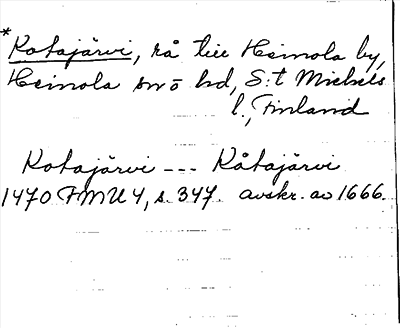 * Kotajärvi, rå till Heinola by,
Heinola snö hd, S:t Michels
l., Finland
Kotajärvi --- Kåtajärvi
1470 FMU 4, s. 347. avskr. av 1666.